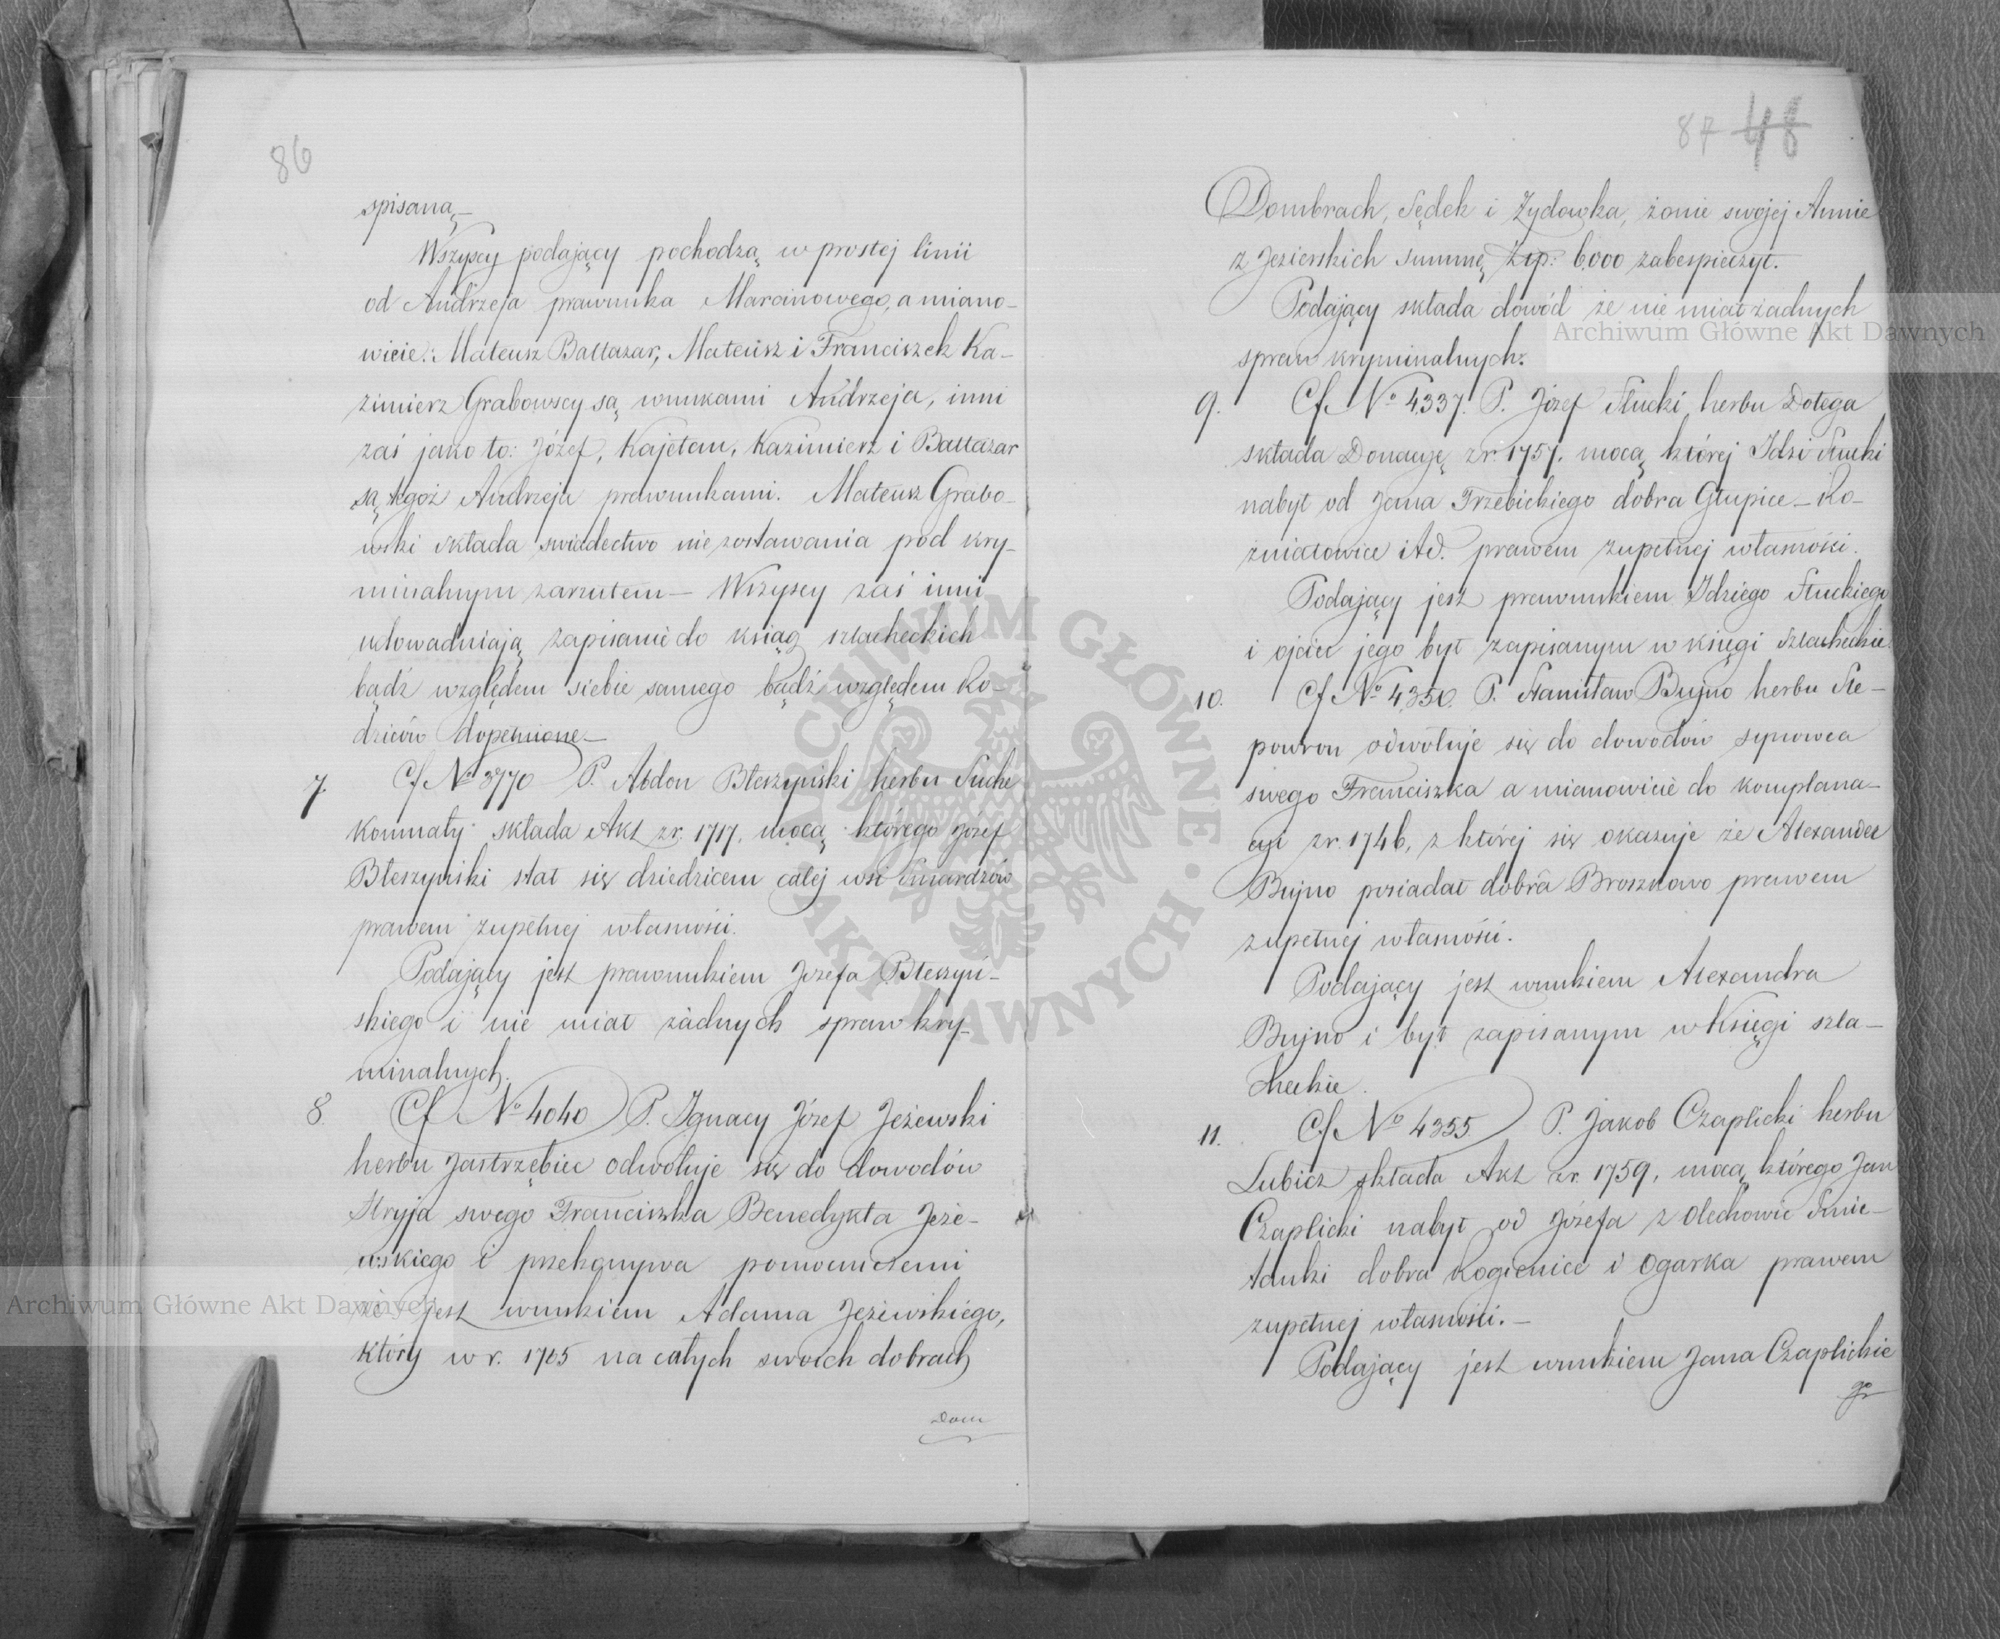 86
spisaną_
Wszyscy podający pochodzą w prostej linii
od Andrzeja prawnuka Marcinowego, a miano-
wicie: Mateusz Baltazar, Mateusz i Franciszek Ka-
zimierz Grabowscy są wnukami Andrzeja, inni
zaś jako to: Józef, Kajetan, Kazimierz i Baltazar
są tegoż Andrzeja prawnukami. Mateusz Grabo-
wski składa świadectwo niezostawania pod kry-
minalnym zarzutem_ Wszyscy zaś inni
udowadniają zapisanie do ksiąg szlacheckich
bądź względem siebie samego bądź względem Ro-
dziców dopełnione_
7. Cf No 3770 P. Abdon Błeszyński herbu Suche
komnaty składa Akt z r. 1717, mocą którego Józef
Błeszyński stał się dziedzicem całej wsi Smardzów
prawem zupełnej własności.
Podający jest prawnukiem Józefa Błeszyń-
skiego i nie miał żadnych spraw kry-
minalnych.
8. Cf No 4040 P. Ignacy Józef Jeżewski
herbu Jastrzębiec odwołuje się do dowodów
Stryja swego Franciszka Benedykta Jeże-
wskiego i przekonywa
że jest wnukiem Adama Jeżewskiego,
który w r. 1765 na całych swoich dobrach
Dom
87 48
Dombrach, Sędek i Żydowka, żonie swojej Annie
z Jezierskich summę Złp: 6,000 zabespieczył.
Podający składa dowód że nie miał żadnych
spraw kryminalnych.
9. Cf. No 4,337. P. Józef Słucki herbu Dołęga
składa Donację z r. 1757. mocą której Idzi Słucki
nabył od Jana Trzebickiego dobra Głupice_ Ro-
żniatowice itd. prawem zupełnej własności.
Podający jest prawnukiem Idziego Słuckiego
i ojciec jego był zapisanym w księgi szlacheckie.
10. Cf No 4,350. P. Stanisław Bujno herbu Śle-
powron odwołuje się do dowodów synowca
swego Franciszka a mianowicie do komplana-
cyi z r. 1746, z której się okazuje że Alexander
Bujno posiadał dobra Brosznowo prawem
zupełnej własności.
Podający jest wnukiem Alexandra
Bujno i był zapisanym w Księgi szla-
checkie.
11. Cf No 4355 P. Jakob Czaplicki herbu
Lubicz składa Akt z r. 1759, mocą którego Jan
Czaplicki nabył od Józefa z Olechowic Śmie-
tanki dobra Kogienice i Ogarka prawem
zupełnej własności._
Podający jest wnukiem Jana Czaplickie
go
Archiwum Główne Akt Dawnych
Archiwum Główne Akt Dawnych
ARCHIWUM GŁÓWNE · AKT DAWNYCH ·